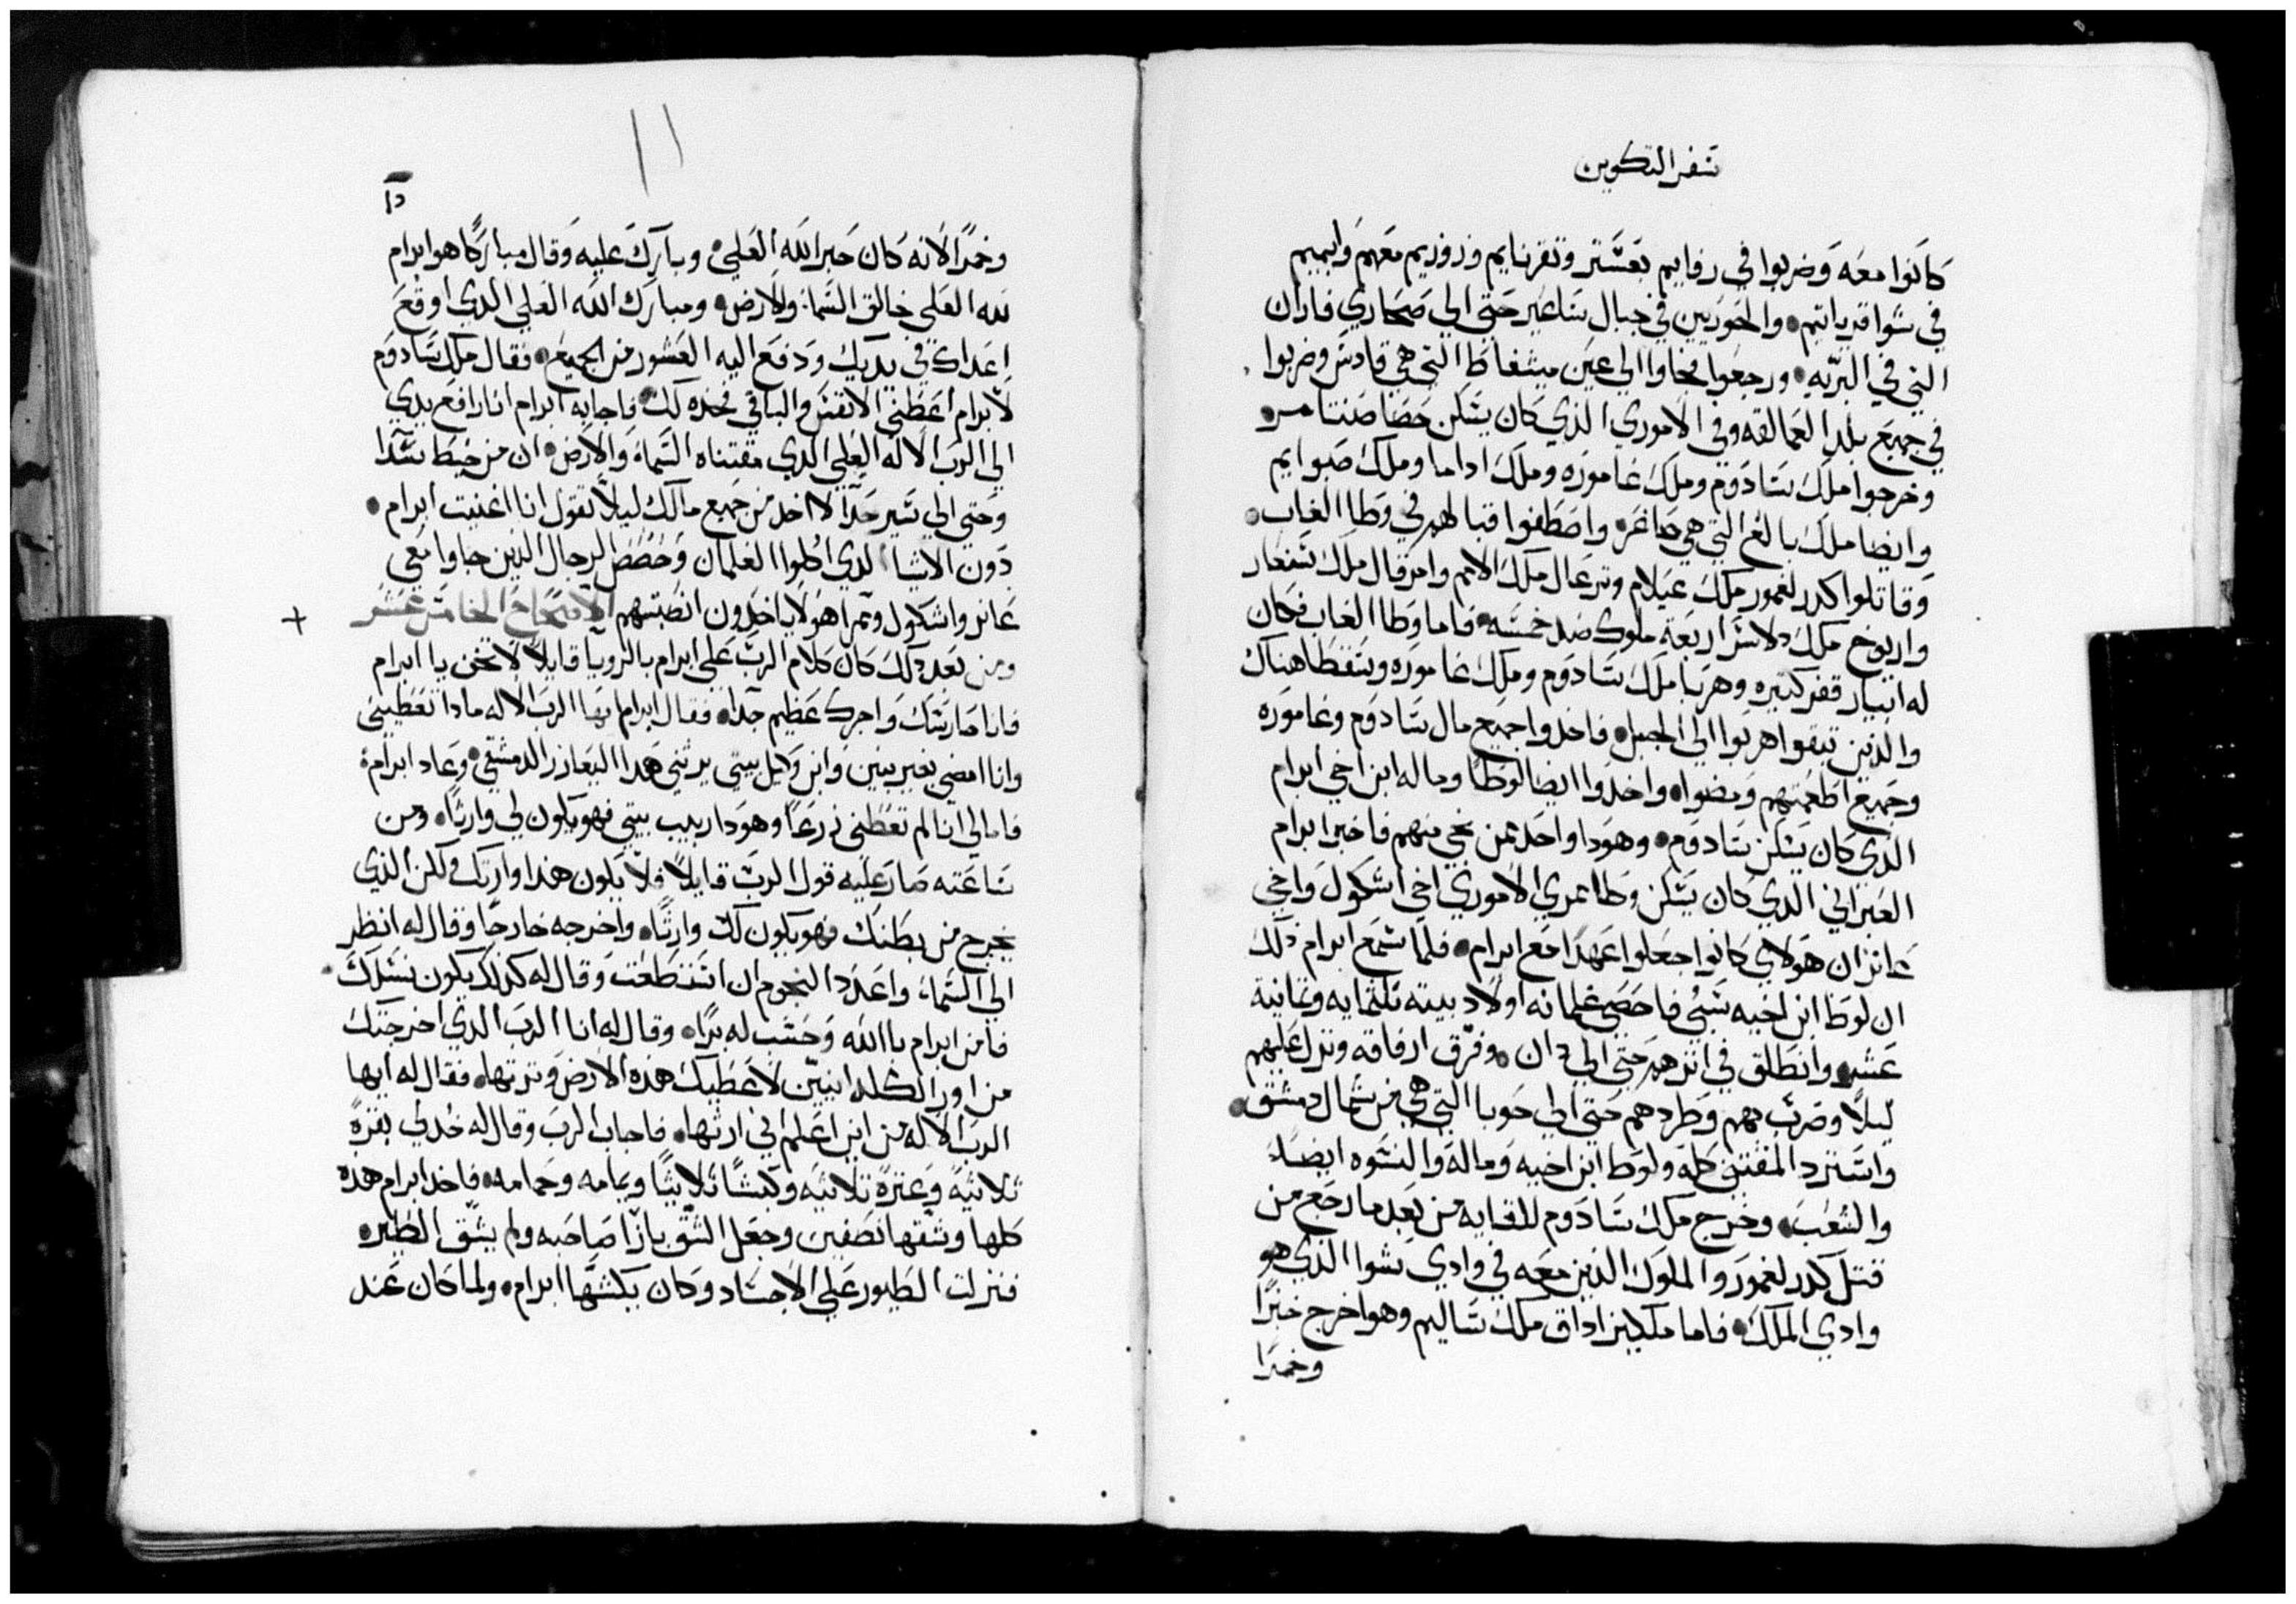 سفر التكوين
كانوا معه وضربوا في رفايم بعشتر وتقرنايم وزوزيم معهم وايميم
في شوا قرياتيم والحوريين في جبال ساعير حتى الي صحاري فاران
التي في البريه ورجعوا فجاوا الي عين ميشفاط التي هي قادش وضربوا
في جميع بلد العمالقه وفي الاموري الذي كان يسكن حصاصنتامر
وخرجوا ملك سادوم وملك غاموره وملك اداما وملك صبوايم
وايضا ملك بالغ التي هي صاغر واصطفوا قبالهم في وطا الغاب
وقاتلوا كدر لغمور ملك عيلام وترعال ملك الامم وامرفال ملك شنعار
واريوخ ملك دلاسر اربعة ملوك ضد خمسه فاما وطا الغاب فكان
له ابيار قفر كثيره وهربا ملك سادوم وملك غاموره وسقطا هناك
والذين تبقوا هربوا الي الجبل فاخدوا جميع مال سادوم وغاموره
وجميع اطعمتهم ومضوا واخدوا ايضا لوطا وماله ابن اخي ابرام
الذي كان يسكن سادوم وهودا واحد ممن نجي منهم فاخبر ابرام
العبراني الدي كان يسكن وطا ممري الاموري اخي اشكول واخي
عانر ان هولاي كانوا جعلوا عهدا مع ابرام فلما سمع ابرام ذلك
ان لوط ابن اخيه سبي فاحصي غلمانه اولاد بيته تلتمايه وتمانية
عشر وانطلق في اترهم حتي الي دان وفرق ارفاقه ونزل عليهم
ليلا وضرب بهم وطردهم حتي الي حوبا التي هي من شمال دمشق
واسترد المقتني كله ولوط ابن اخيه وماله والنسوه ايضا
والشعب وخرج ملك سادوم للقايه من بعد ما رجع من
قتل كدر لغمور والملوك الذين معه في وادي شوا الذي هو
وادي الملك فاما ملكيزاداق ملك ساليم وهو اخرج خبزا
وخمرا
١١
وخمرا لانه كان حبرا لله العلي وبارك عليه وقال مباركا هو ابرام
لله العلي خالق السما والارض ومبارك الله العلي الدي اوقع
اعداك في يديك ودفع اليه العشور من الجميع فقال ملك سادوم
لابرام اعطني الانفس والباقي فخده لك فاجابه ابرام انا رافع يدي
الي الرب الاله العلي الدي مقتناه السما والارض ان من خيط سدا
وحتي الي سير حدا لا اخد من جميع مالك ليلا تقول انا اغنيت ابرام
دون الاشيا الدي اكلوا الغلمان وحصص الرجال الذين جاوا معي
عانر واشكول وممرا هولا ياخدون انصبتهم الاصحاح الخامس عشر
ومن بعد دلك كان كلام الرب علي ابرام بالرويا قايلا لا تخف يا ابرام
فانا صارسك واجرك عظيم جدا فقال ابرام ايها الرب الاله مادا تعطيني
وانا امضي بغير بنين وابن وكيل بيتي يرثني هدا اليعازر الدمشقي وعاد ابرام
فامالي انا لم تعطني زرعا وهودا ربيب بيتي فهو يكون لي وارثا ومن
ساعته صار عليه قول الرب قايلا فلا يكون هذا وارثك لكن الذي
يخرج من بطنك فهو يكون لك وارثا واخرجه خارجا وقال له انظر
الي السما واعدد النجوم ان استطعت وقال له كدلك يكون نسلك
فامن ابرام بالله وحسب له برا وقال له انا الرب الدي اخرجتك
من اور الكلدانيين لاعطيك هده الارض وترتها فقال له ايها
الرب الاله من اين اعلم اني ارثها فاجاب الرب وقال له خد لي بقرة
ثلاثية وعنزة ثلاثيه وكبشا ثلاثيا ويمامه وحمامه فاخد ابرام هده
كلها وشقها نصفين وجعل الشق بازا صاحبه ولم يشق الطير
فنزلت الطيور علي الاجساد وكان يكشها ابرام ولما كان عند